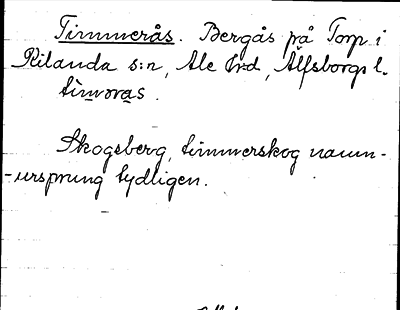 Timmerås. Bergås på Torp i
Kilanda s:n, Ale hrd, Älfsborgs l.
timəras.
Skogsberg, timmerskog namn-
-ursprung tydligen.